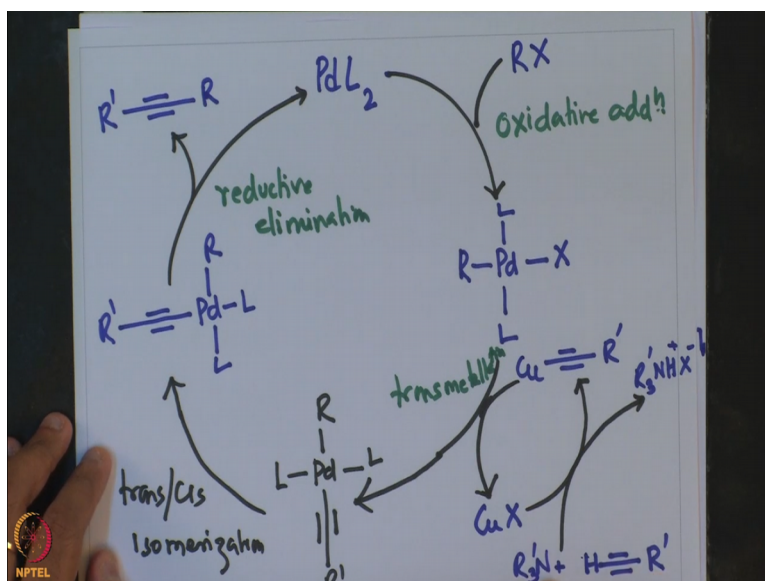 PdL₂
RX
oxidative addⁿ
R'≡R
reductive
elimination
L
R-Pd-X
L
R
R'≡Pd-L
L
Cu≡R'
R'₃NH⁺X⁻
R
L-Pd-L
R'
trans/cis
isomerization
CuX
R'₃N+ H≡R'
NPTEL